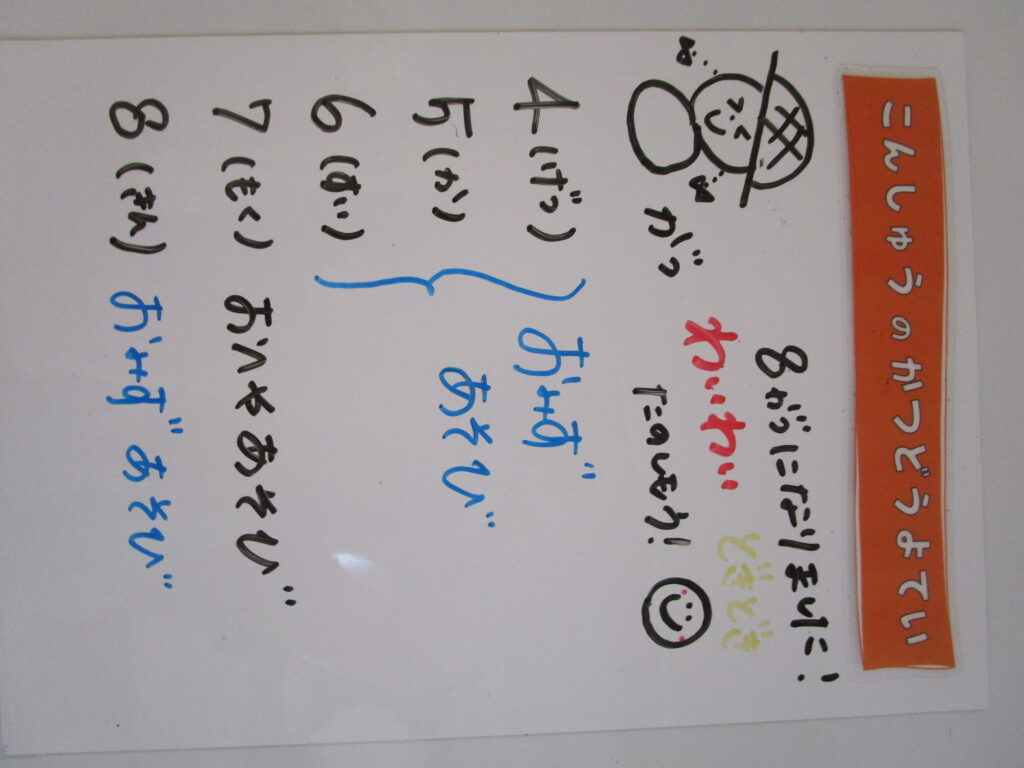 こんしゅうのかつどうよてい
8がつになりました!
わいわい どきどき
がつ たのしもう!
4 (げつ) おみず
5 (か) あそび
6 (すい)
7 (もく) おへやあそび
8 (きん) おみずあそび